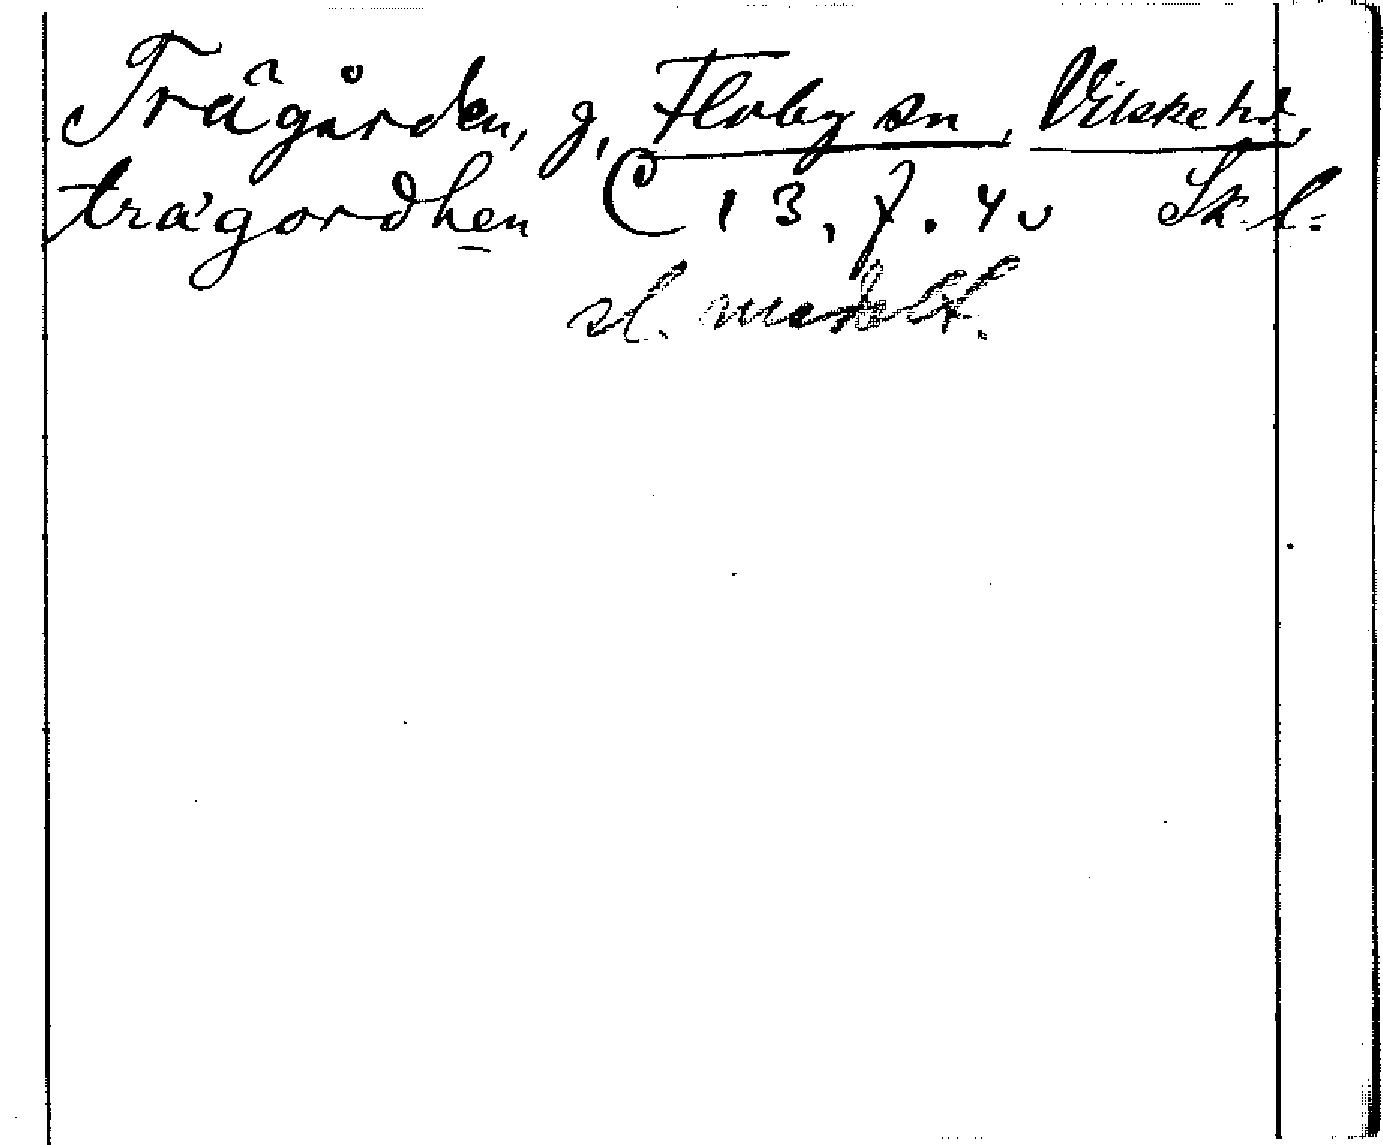 Trägården, g, Floby sn, Vilske hd,
trägordhen C 13, f. 4v Sk. l:
sl. medelt.